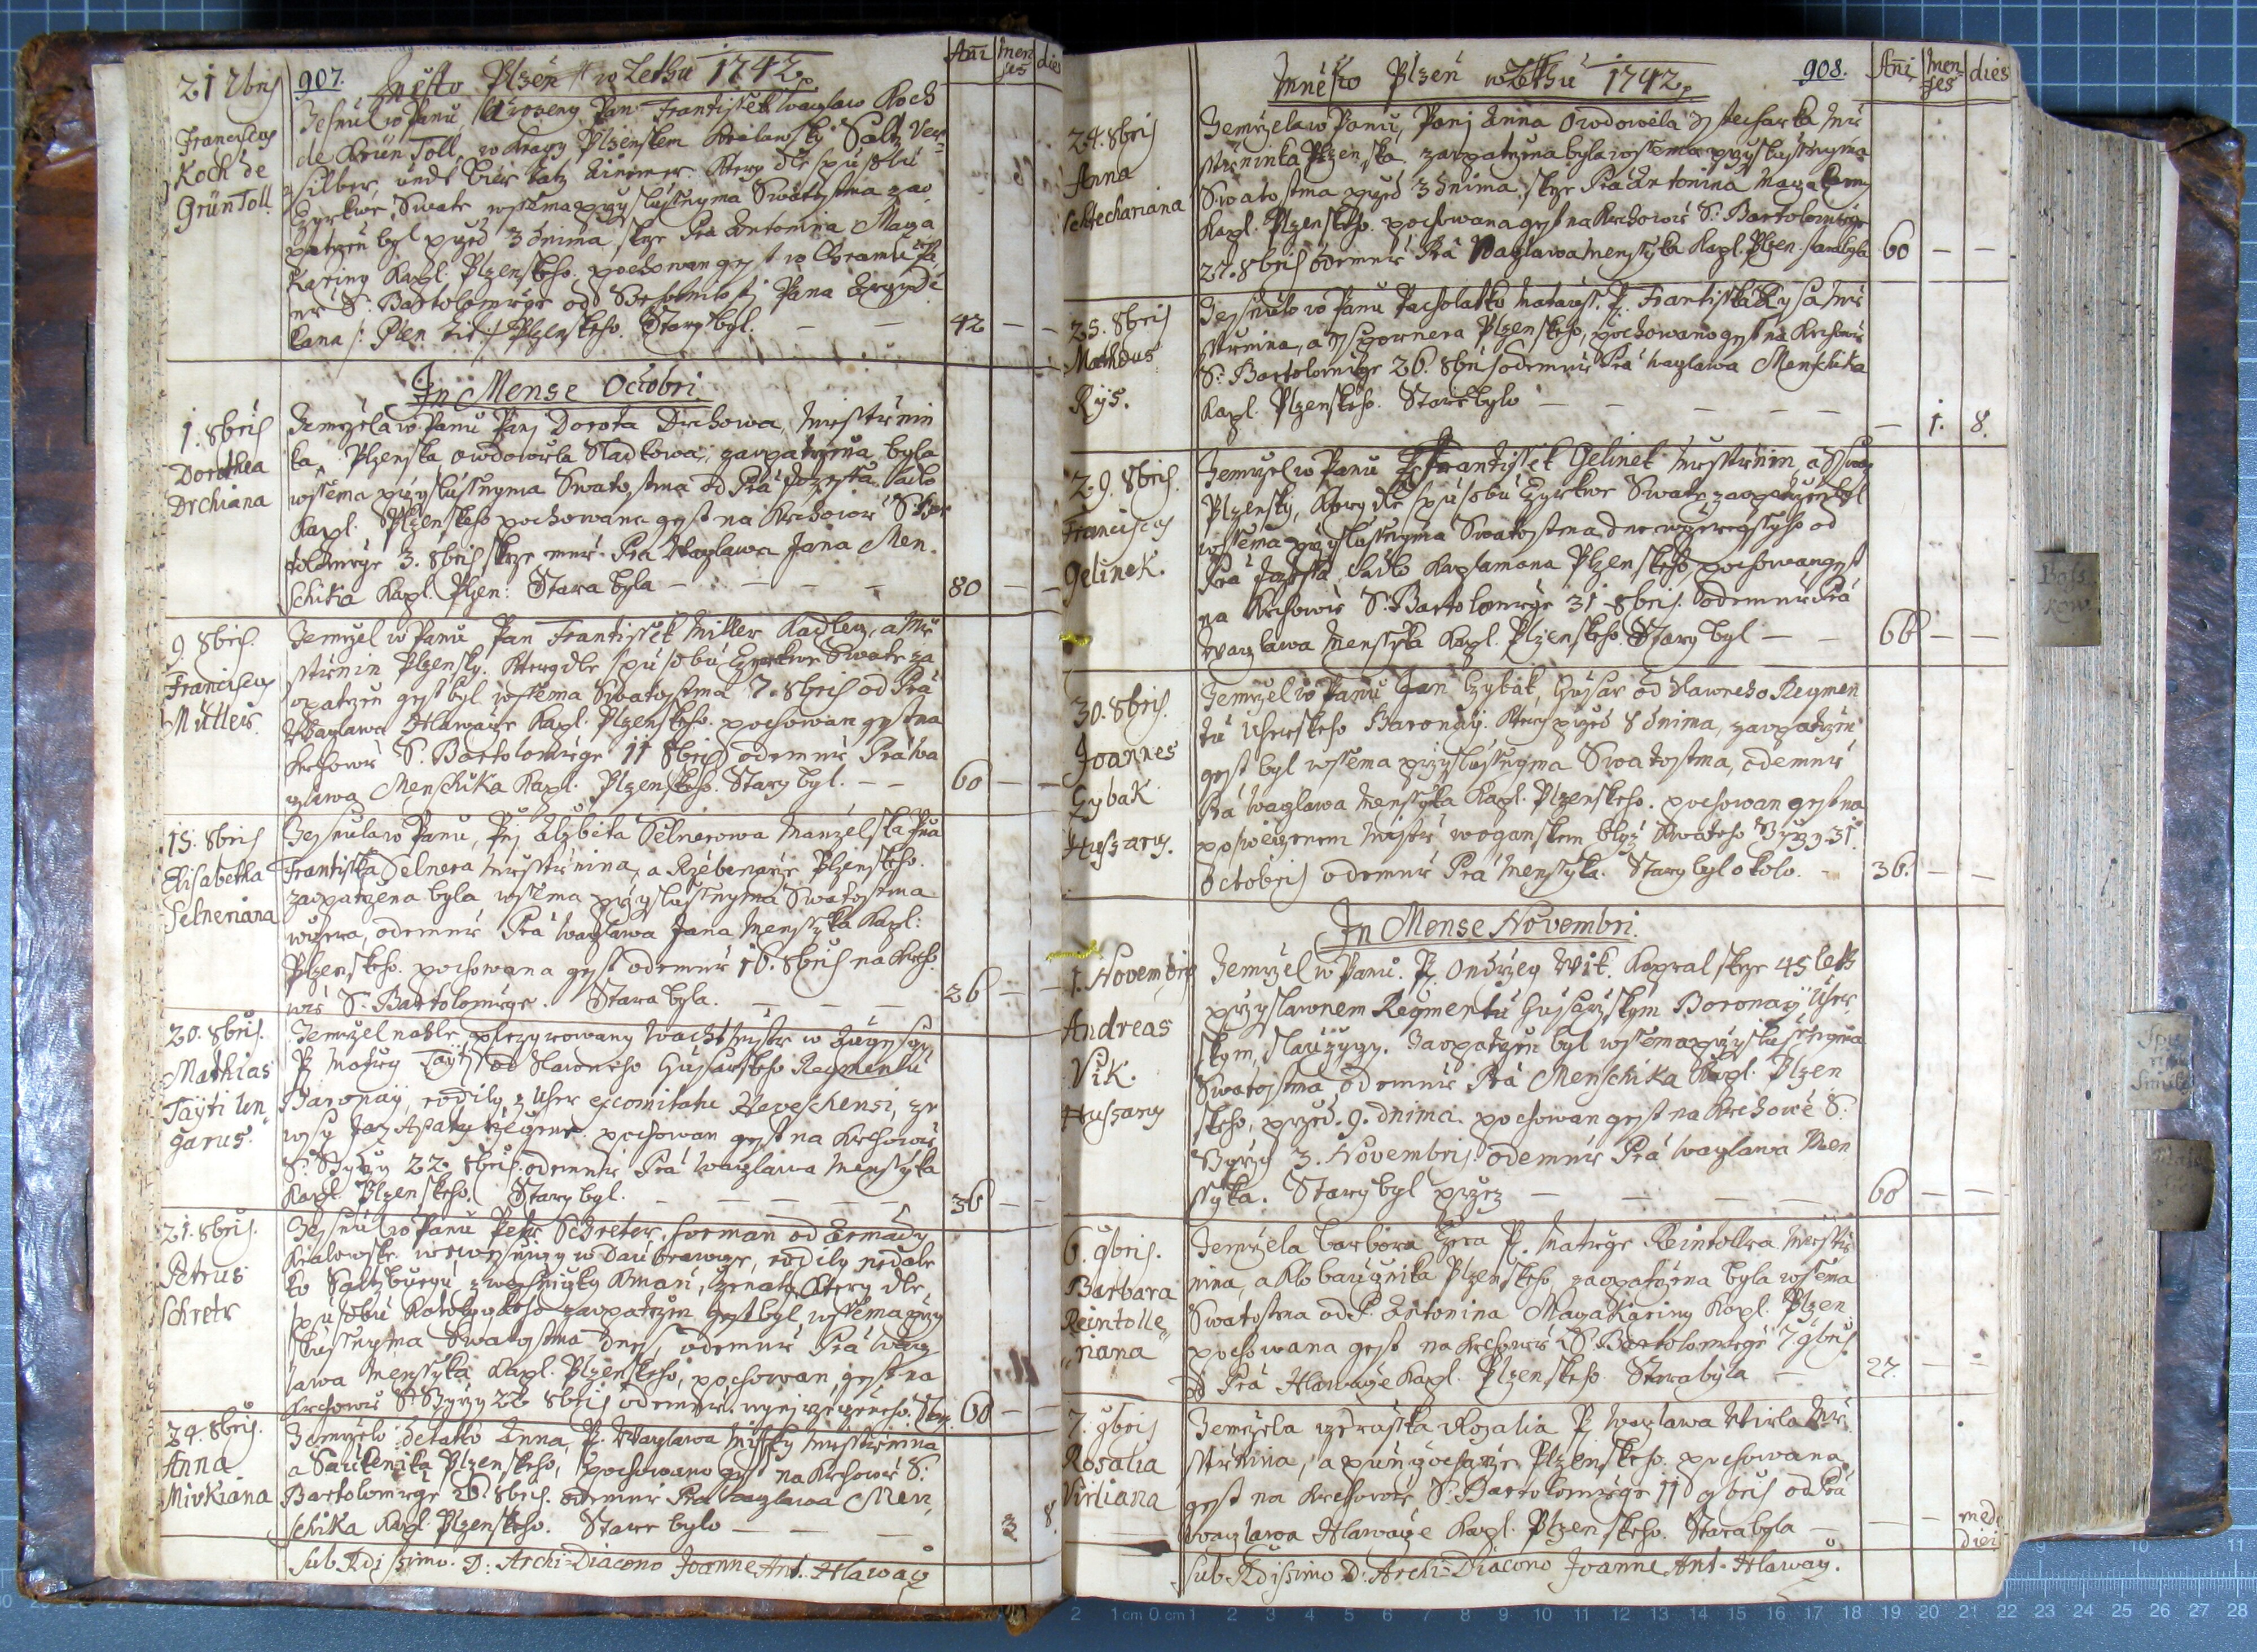 907. Město Plzeň w Lethu 1742.
Añi menses dies
21 7bris
Franciscus
Koch de
Grün Toll
Zesnul w Panu, Pan Frantissek Waczlaw Koch
de Grün Toll, w Kragy Plzenskem Kralowsky Saltz Ver=
silber, undt Bier Tatz Einemer. Ktery dle spusobu
Cyrkwe Swate wssema przyslussnyma Swatostma zao
patrzen byl przed 3 dnima skrze Pra Antonina Maga
Kariny Kapl. Plzenskeho. pochowan gest w Chramu Pa
ne S. Bartolomege od Pana Arcyde
kana /: Plen: Tit: :/ Plzenskeho. Stary byl. — — 42 — —
In Mense Octobri.
1. 8bris
Dorothea
Drchiana
Zemrzela w Panu Panj Dorota Drchowa, Miesstienin
ka Plzenska owdowiela Sladkowa, zaopatrzena byla
wssema przyslussnyma Swatostma od Pra Jozeffa Sadlo
Kapl. Plzenskeho pochowana gest na Krchowie S. Bar
tolomege 3. 8bris skrze mne Pra Waczlawa Jana Men
schika Kapl. Plzen: Stara byla — — — 80 —
9. 8bris.
Franciscus
Müller.
Zemrzel w Panu Pan Frantissek Miller Kadlecz, a Mie
sstienin Plzensky. Kteryz dle spusobu Cyrkwe Swate za
opatrzen gest byl wssema Swatostma 7. 8bris od Pra
Waczlawa Hlawacze Kapl. Plzenskeho. pochowan gest na
Krchowie S. Bartolomiege 11 8bris odemne Pra Wa
czlawa Menschika Kapl. Plzenskeho. Stary byl. — — 60 — —
15. 8bris
Elisabetha
Selneriana
Zesnula w Panu, Pnj Alzbieta Selnerowa Manzelska Pna
Frantisska Selnera Miesstienina, a Rzebenarze Plzenskeho.
zaopatrzena byla wssema przyslussnyma Swatostma
wczera, odemne Pra Waczlawa Jana Menssyka Kapl:
Plzenskeho. pochowana gest odemne 16. 8bris na Krcho
wie S. Bartolomiege. Stara byla. — — 26 — —
20. 8bris.
Mathias
Taÿti Un
garus.
Zemrzel nahle plezyrowany Wachtmistr w
P. Matieg Taÿti od Slawneho Husarskeho Regmentu
Baronaÿ, rodily z Uher ex comitatu Heveschensi, ze
wsy Jaz Apaty rzeczene. pochowan gest na Krchowie
S. 22. 8bris. odemne Pra Waczlawa Menssyka
Kapl. Plzenskeho. Stary byl. — — — 36 —
21. 8bris.
Petrus
Schretr
Zesnul w Panu Petr Schreter, forman od Armady
Kralowske w w Daubrawce, rodily nedale
ko Saltzburgu z , zenaty, Ktery dle
spusobu Katolyczkeho zaopatrzen gest byl wssema przy
slussnyma Swatostma dnes, odemne Pra Wacz
lawa Menssyka Kapl. Plzenskeho, pochowan gest na
Krchowie S. 22 8bris odemne 60 — —
24. 8bris.
Anna
Mivkiana
Zemrzelo detatko Anna, P. Waczlawa Miesstienina
a Saukenika Plzenskeho, pochowano gest na Krchowie S:
Bartolomege 26. 8bris. odemne Pra Waczlawa Men
schika Kapl. Plzenskeho. Stare bylo — — — 3 8.
Sub Rdissimo. D: Archi=Diacono Joanne Ant. Hlawacz
Mněsto Plzeň w Lethu 1742. 908.
Añi menses dies
24. 8bris
Anna
Schtechariana
Zemrzela w Panu, Panj Anna Owdowiela Sstecharka Mie
sstieninka Plzenska. zaopatrzena byla wssema przyslussnyma
Swatostma przed 3 dnima, skrze Pra Antonina Maga Kariny
Kapl. Plzenskeho. pochowana gest na Krchowie S: Bartolomiege
27. 8bris odemne Pra Waczlawa Menssyka Kapl. Plzen. stara byla 60 — —
25. 8bris
Matheus
Rÿs.
Zesnulo w Panu Pacholatko Matauss. P. Frantisska Rysa Mie
sstienina, a Plzenskeho, pochowano gest na Krchowie
S: Bartolomiege 26. 8bris odemne Pra Waczlawa Menschika
Kapl. Plzenskeho. Stare bylo — — — — — 1. 8.
29. 8bris.
Franciscus
Gelinek.
Zemrzel w Panu P. Frantissek Gelinek Miesstienin, a
Plzensky, Ktery dle spusobu Cyrkwe Swate zaopatrzen byl
wssema przyslussnyma Swatostma dne wczeregssyho od
Pra Jozeffa Sadlo Kaplamana Plzenskeho, pochowan gest
na Krchowie S: Bartolomiege 31 8bris. odemne Pra
Waczlawa Menssyka Kapl. Plzenskeho. Stary byl — — 66 — —
30. 8bris.
Joannes
Czybak
Hussarus.
Zemrzel w Panu Jan Czybak, Husar od Slawneho Regmen
tu Uherskeho Baronaÿ. Ktery przed 8 dnima, zaopatrzen
gest byl wssema przyslussnyma Swatostma, odemne
Pra Waczlawa Menssyka Kapl. Plzenskeho. pochowan gest na
poswieczenem Mistie woganskem blyz Swateho 31.
Octobris odemne Pra Menssyka. Stary byl okolo. — 36. — —
In Mense Novembri.
1. Novembris
Andreas
Vik.
Hussarus
Zemrzel w Panu. P. Ondrzeg Wik. Kapral skrze 45 leth
przy slawnem Regmentu Husarzskym Boronaÿ Uher
skym slauzyczy. Zaopatrzen byl wssema przyslussnyma
Swatostma odemne Pra Menschika Kapl. Plzen
skeho, przed. 9. dnima. pochowan gest na Krchowie S:
3. Novembris. odemne Pra Waczlawa Men
ssyka. Stary byl przez — — — 60 — —
6. 9bris.
Barbara
Reintolle
riana
Zemrzela Barbora Czera P. Matiege Reintollera Miesstie
nina, a Klobaucznika Plzenskeho, zaopatrzena byla wssema
Swatostma od P. Antonina Maga Kariny Kapl. Plzen.
pochowana gest na Krchowie S: Bartolomiege 7. 9bris
od Pra Hlawacze Kapl. Plzenskeho. Stara byla — 22. — —
7. 9bris
Rosalia
Virliana
Zemrzela Rozalia P. Waczlawa Wirla Mie
sstienina, a punczocharze Plzenskeho. pochowana
gest na Krchowie S: Bartolomiege 11 9bris od Pra
Waczlawa Hlawacze Kapl. Plzenskeho. Stara byla — — — medi diei
Sub Rdissimo D: Archi=Diacono Joanne Ant. Hlawacz.